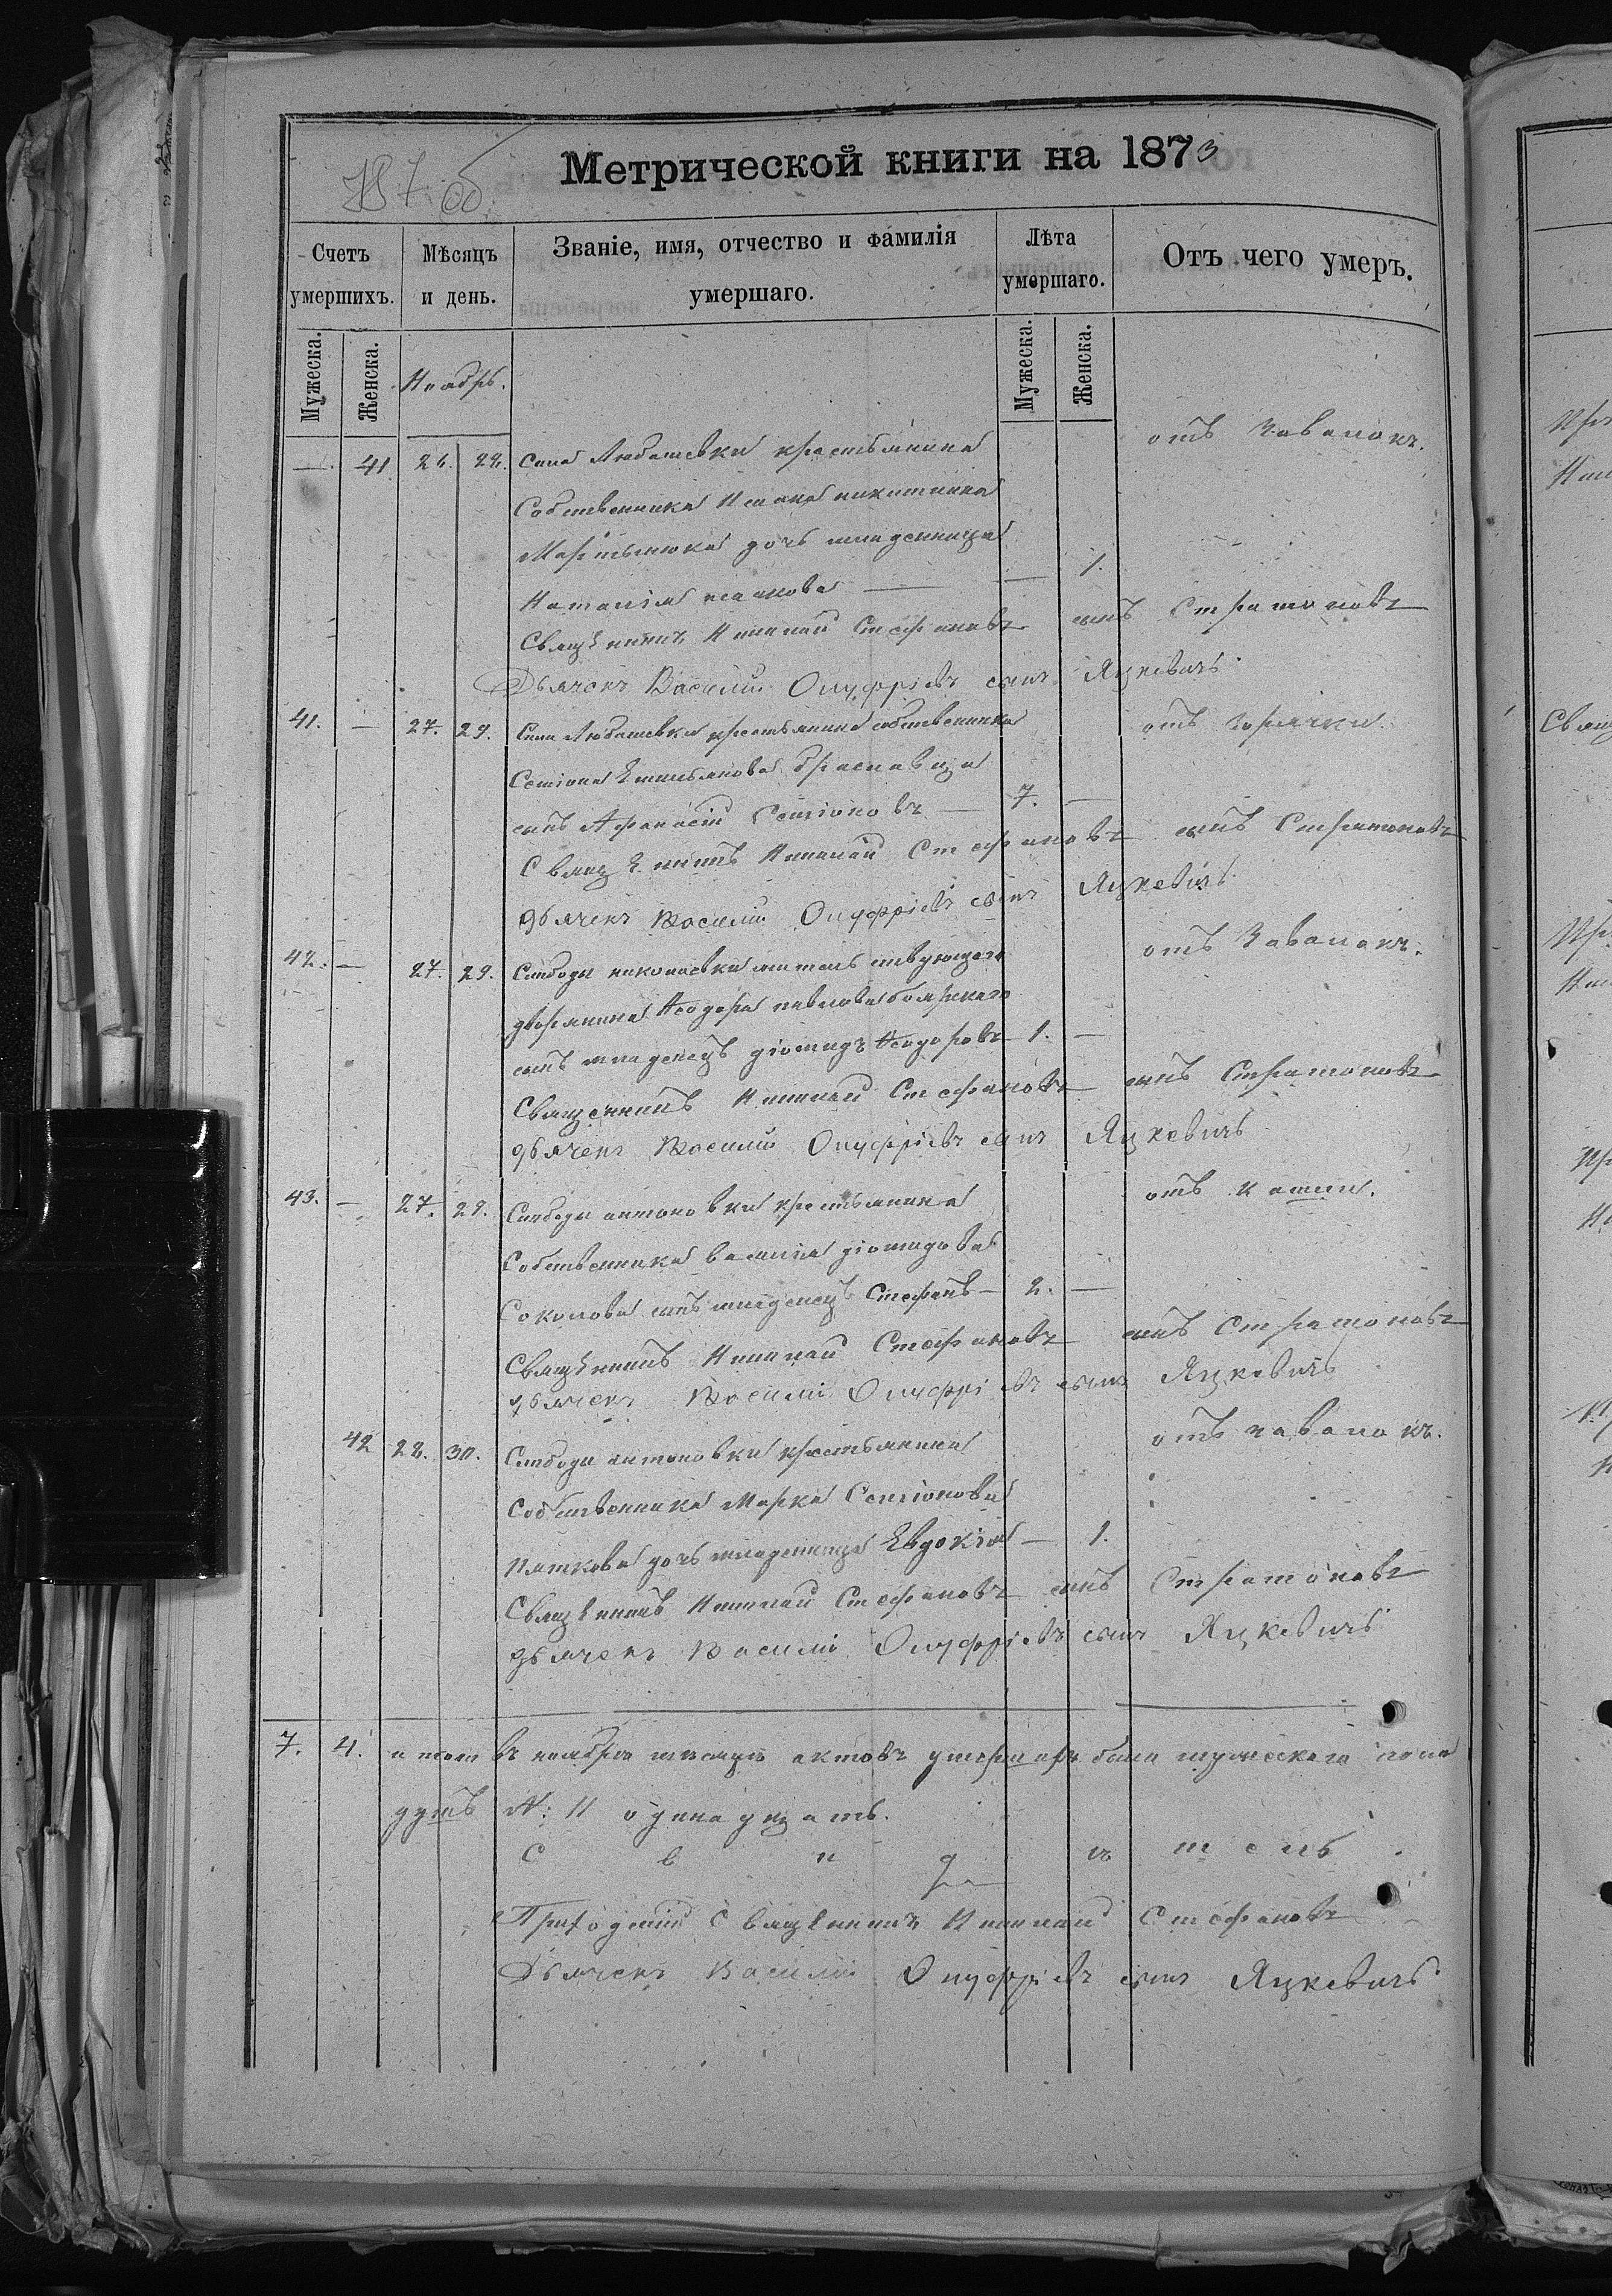 787 об
Метрической книги на 1873
Счетъ умершихъ.
Мѣсяцъ и день.
Званіе, имя, отчество и фамилія умершаго.
Лѣта умершаго.
Отъ чего умеръ.
Мужеска.
Женска.
Ноябрь.
Мужеска.
Женска.
— 41 26. 28. Села Любашевки крестьянина отъ Завалокъ.
Собственника Исаака никитина
Мартынюка дочь младенница
Наталія исакова — — 1.
Священникъ Николай Стефановъ сынъ Стратоновъ
Дьячекъ Василий Онуфріевъ сынъ Яцкевичъ
41. — 27. 29. Села Любашевки крестьянина собственника отъ горячки
Семіона Емильянова браславца
сынъ Афанасій Семіоновъ — 7. —
Священникъ Николай Стефановъ сынъ Стратоновъ
дьячекъ Василий Онуфріевъ сынъ Яцкевичъ
42. — 27. 29. Слободы николаевки жительствующаго отъ Завалокъ.
дворянина Феодора павлова боярскаго
сынъ младенецъ діомидъ Феодоровъ 1. —
Священникъ Николай Стефановъ сынъ Стратоновъ
дьячекъ Василий Онуфріевъ сынъ Яцкевичъ
43. — 27. 29. Слободы антоновки крестьянина отъ кашли.
Собственника василія діомидова
Соколова сынъ младенецъ Стефанъ — 2. —
Священникъ Николай Стефановъ сынъ Стратоновъ
дьячекъ Василий Онуфріевъ сынъ Яцкевичъ
42 28. 30. Слободы антоновки крестьянина отъ завалокъ.
Собственника Марка Семіонова
пяткова дочь младенница Евдокія — 1.
Священникъ Николай Стефановъ сынъ Стратоновъ
дьячекъ Василий Онуфріевъ сынъ Яцкевичъ
7. 4. итого въ ноябрѣ месяцѣ актовъ умершихъ обоего мужескаго пола
душъ №: 11 одинадцать.
С в и д ѣ т е л ь
Приходскій Священникъ Николай Стефановъ
Дьячекъ Василий Онуфріевъ сынъ Яцкевичъ